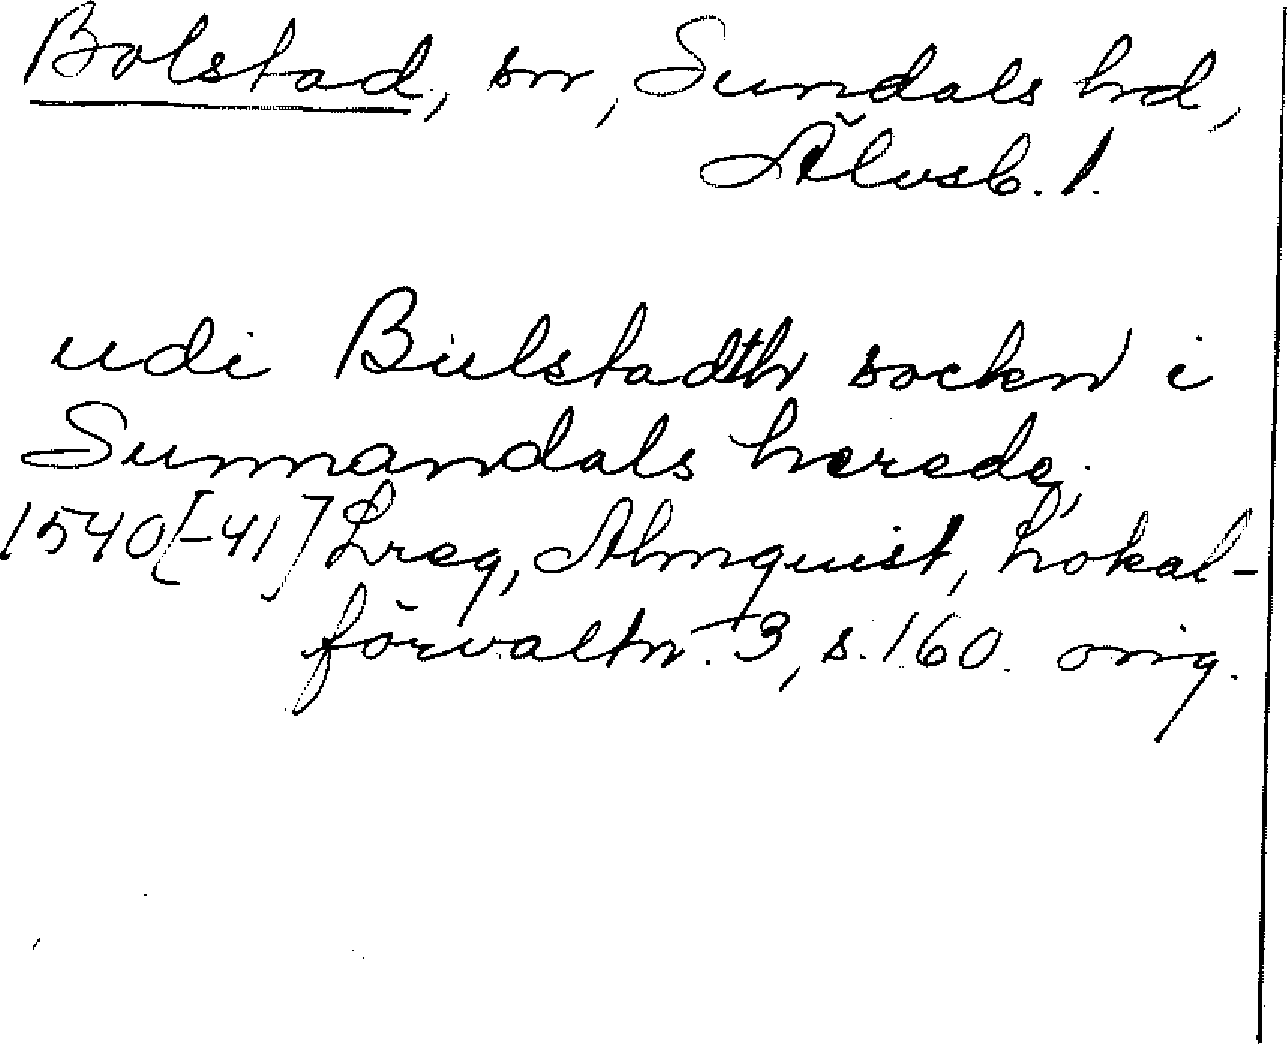 Bolstad, sn, Sundals hd,
Älvsb. l.
udi Bulstadth sockn i
Sunnandals herede,
1540[-41] Lreg, Almquist, Lokal-
förvaltn. 3, s. 160. orig.